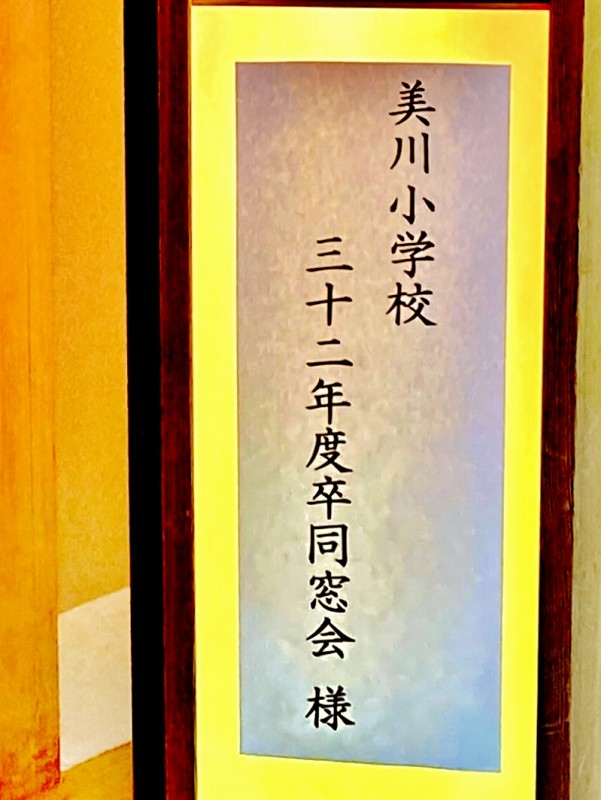 美川小学校
三十二年度卒同窓会 様